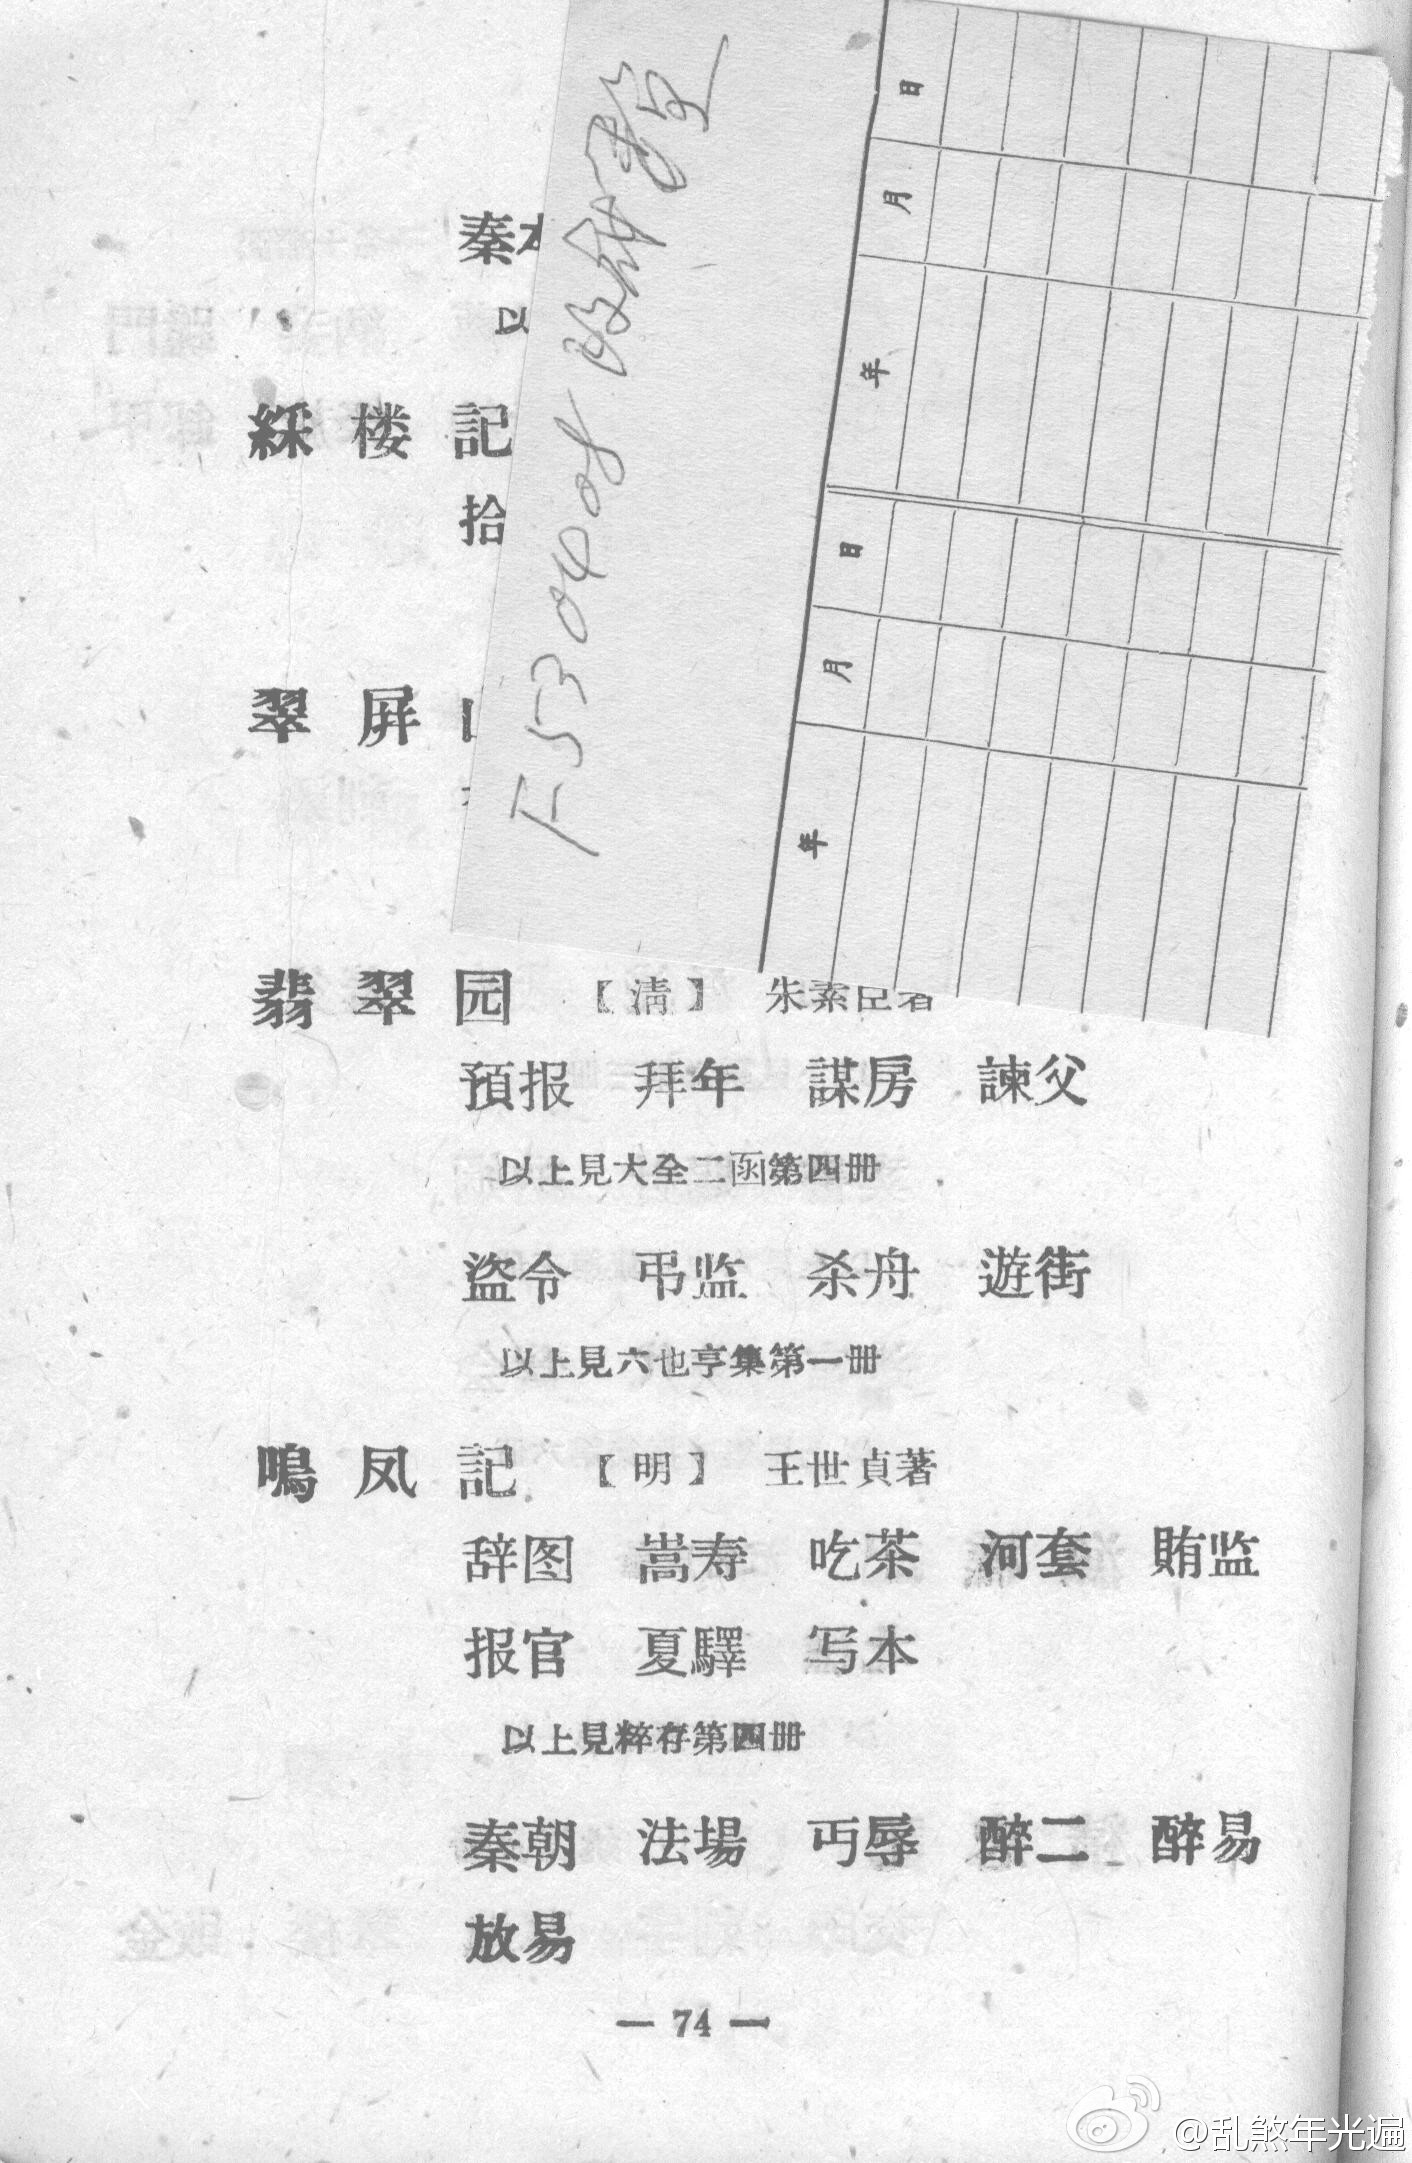 秦本
以
綵楼記
拾
翠屏
翡翠园 【清】 朱素臣著
預报 拜年 謀房 諫父
以上見大全二函第四册
盜令 弔监 杀舟 遊街
以上見六也亨集第一册
鳴凤記 【明】 王世貞著
辞图 嵩寿 吃茶 河套 賄监
报官 夏驛 写本
以上見粹存第四册
秦朝 法場 丐辱 醉二 醉易
放易
— 74 —
日
月
年
日
月
年
F530408
@乱煞年光遍